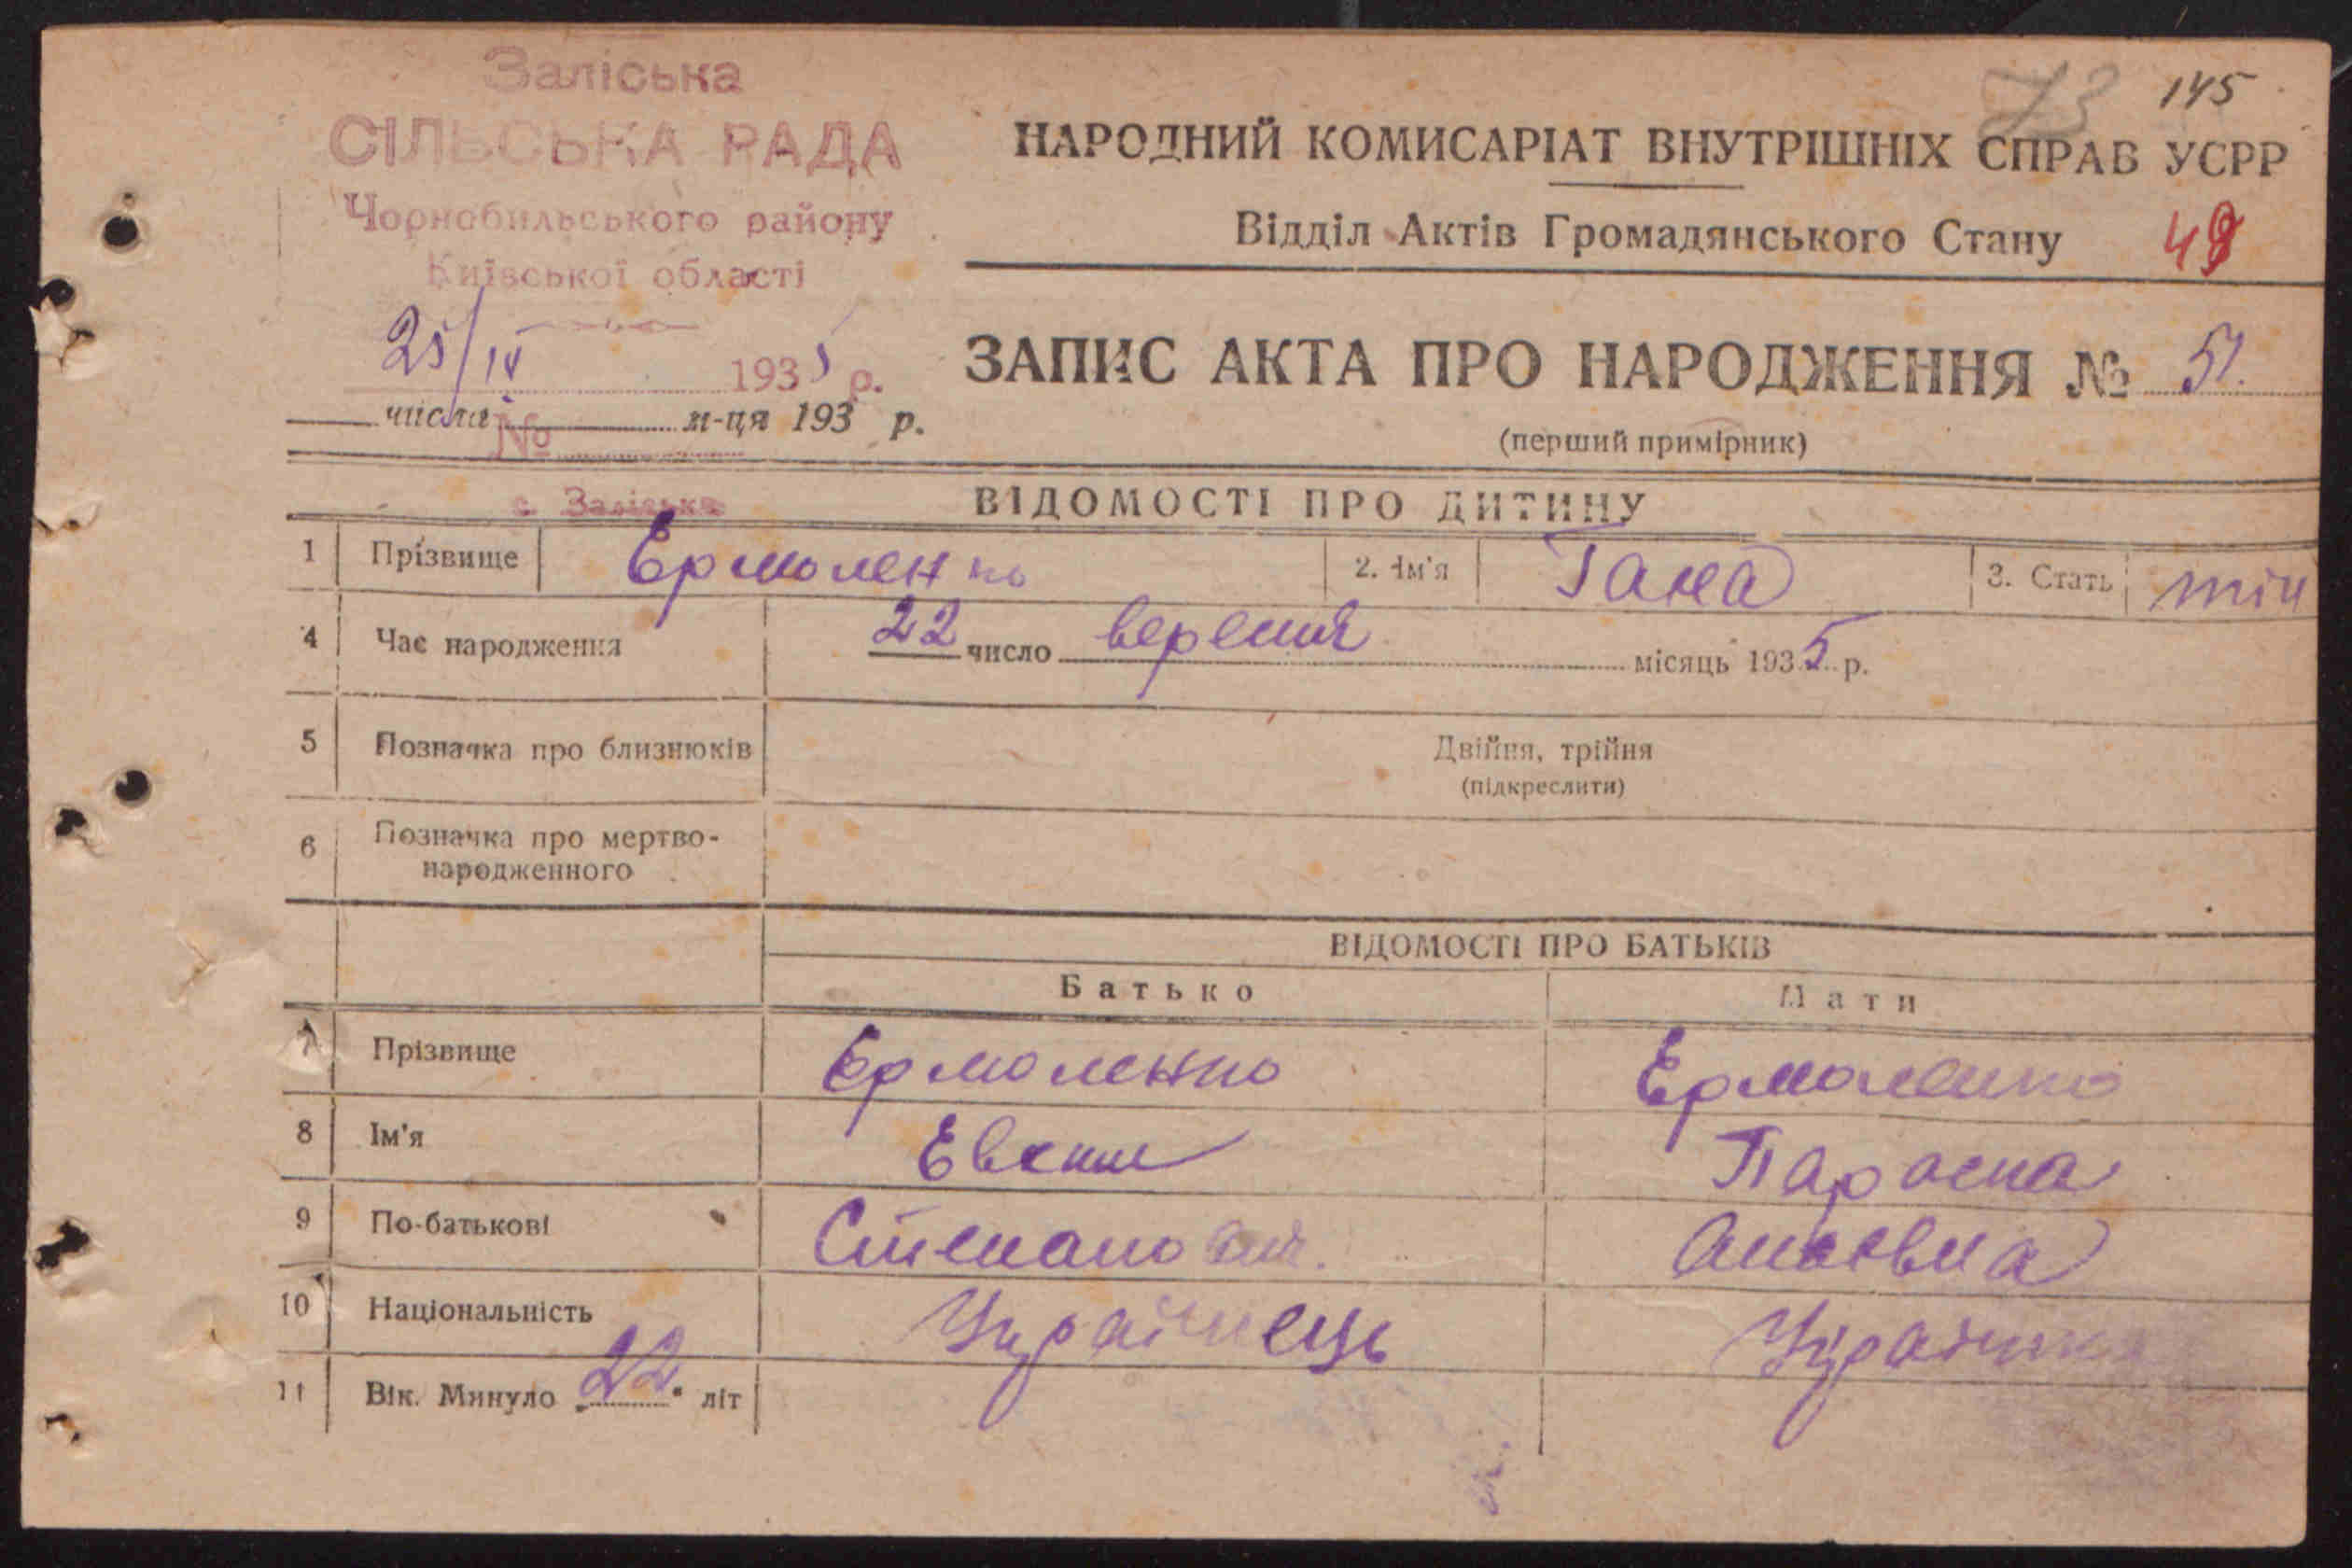 Заліська
СІЛЬСЬКА РАДА
Чорнобильського району
Київської області
73 145
НАРОДНИЙ КОМИСАРІАТ ВНУТРІШНІХ СПРАВ УСРР
Відділ Актів Громадянського Стану 49
25/IX 1935 р.
числа м-ця 193 р.
№
ЗАПИС АКТА ПРО НАРОДЖЕННЯ № 51.
(перший примірник)
с. Заліська
ВІДОМОСТІ ПРО ДИТИНУ
1 Прізвище Ермоленко 2. Ім'я Гана 3. Стать жін
4 Час народження 22 число вересня місяць 1935 р.
5 Позначка про близнюків Двійня, трійня
(підкреслити)
6 Позначка про мертво-
народженного
ВІДОМОСТІ ПРО БАТЬКІВ
Батько Мати
7 Прізвище Ермоленко Ермоленко
8 Ім'я Параска
9 По-батькові Степанович.
10 Національність Українець Українка
11 Вік. Минуло 22 літ